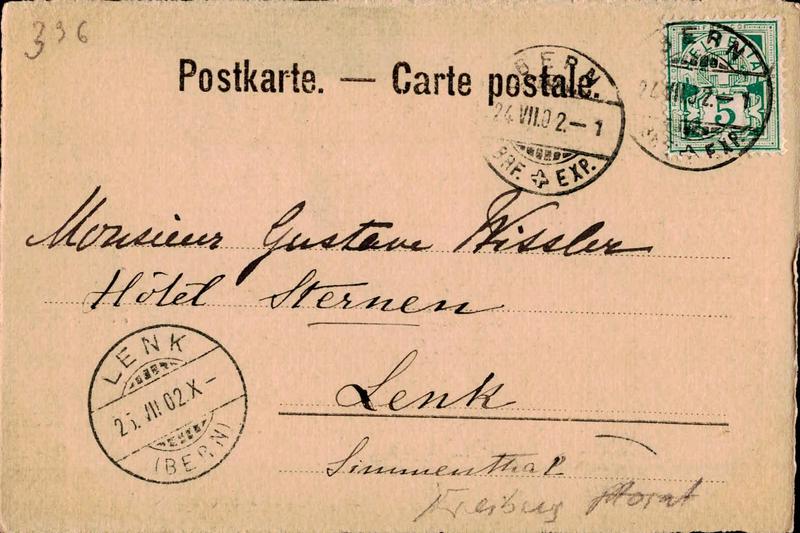 396
Postkarte. — Carte postale.
BERN
24.VII.02.–1
BRF. EXP.
BERN
24.VII.02.–1
EXP.
5
Monsieur Gustave Wissler
Hôtel Sternen
Lenk
Simmenthal
LENK
25.VII.02.X–
(BERN)